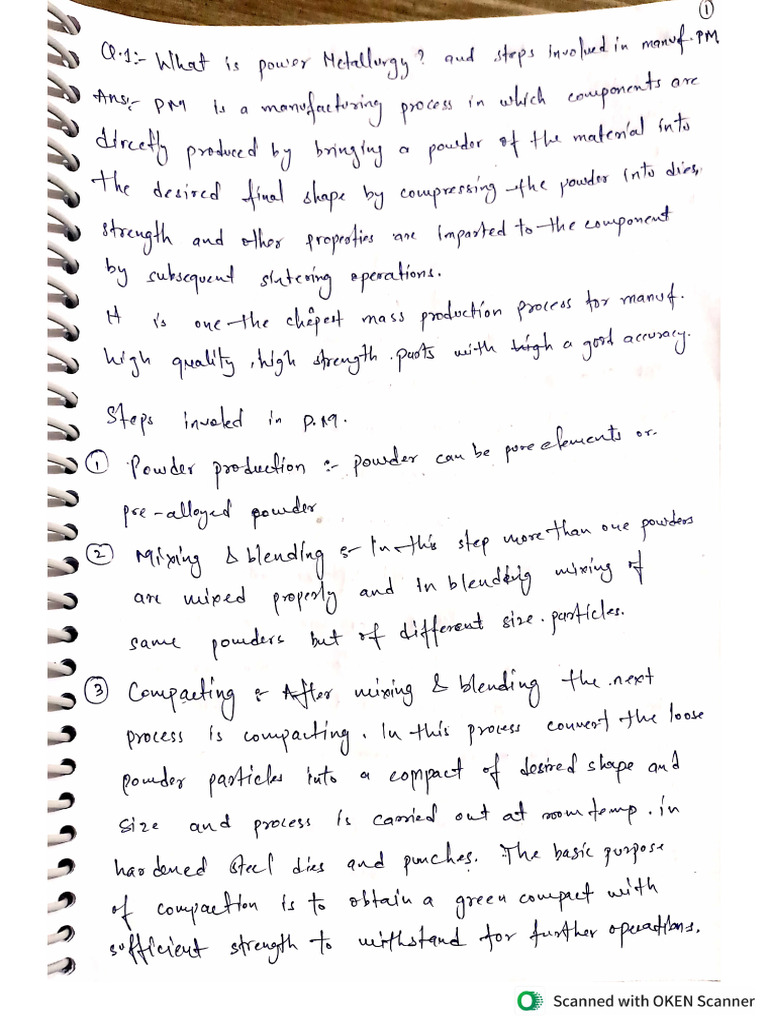 ①
Q.1:- What is power Metallurgy? and steps involved in manuf. PM
Ans:- PM is a manufacturing process in which components are
directly produced by bringing a powder of the material into
the desired final shape by compressing the powder into dies,
strength and other properties are imparted to the component
by subsequent sintering operations.
It is one the cheapest mass production process for manuf.
high quality, high strength parts with high a good accuracy.
Steps involed in P.M.
① Powder production :- powder can be pure elements or
pre-alloyed powder.
② Mixing & blending :- In this step more than one powders
are mixed properly and in blending mixing of
same powders but of different size particles.
③ Compacting :- After mixing & blending the next
process is compacting. In this process convert the loose
powder particles into a compact of desired shape and
size and process is carried out at room temp. in
hardened steel dies and punches. The basic purpose
of compaction is to obtain a green compact with
sufficient strength to withstand for further operations.
Scanned with OKEN Scanner